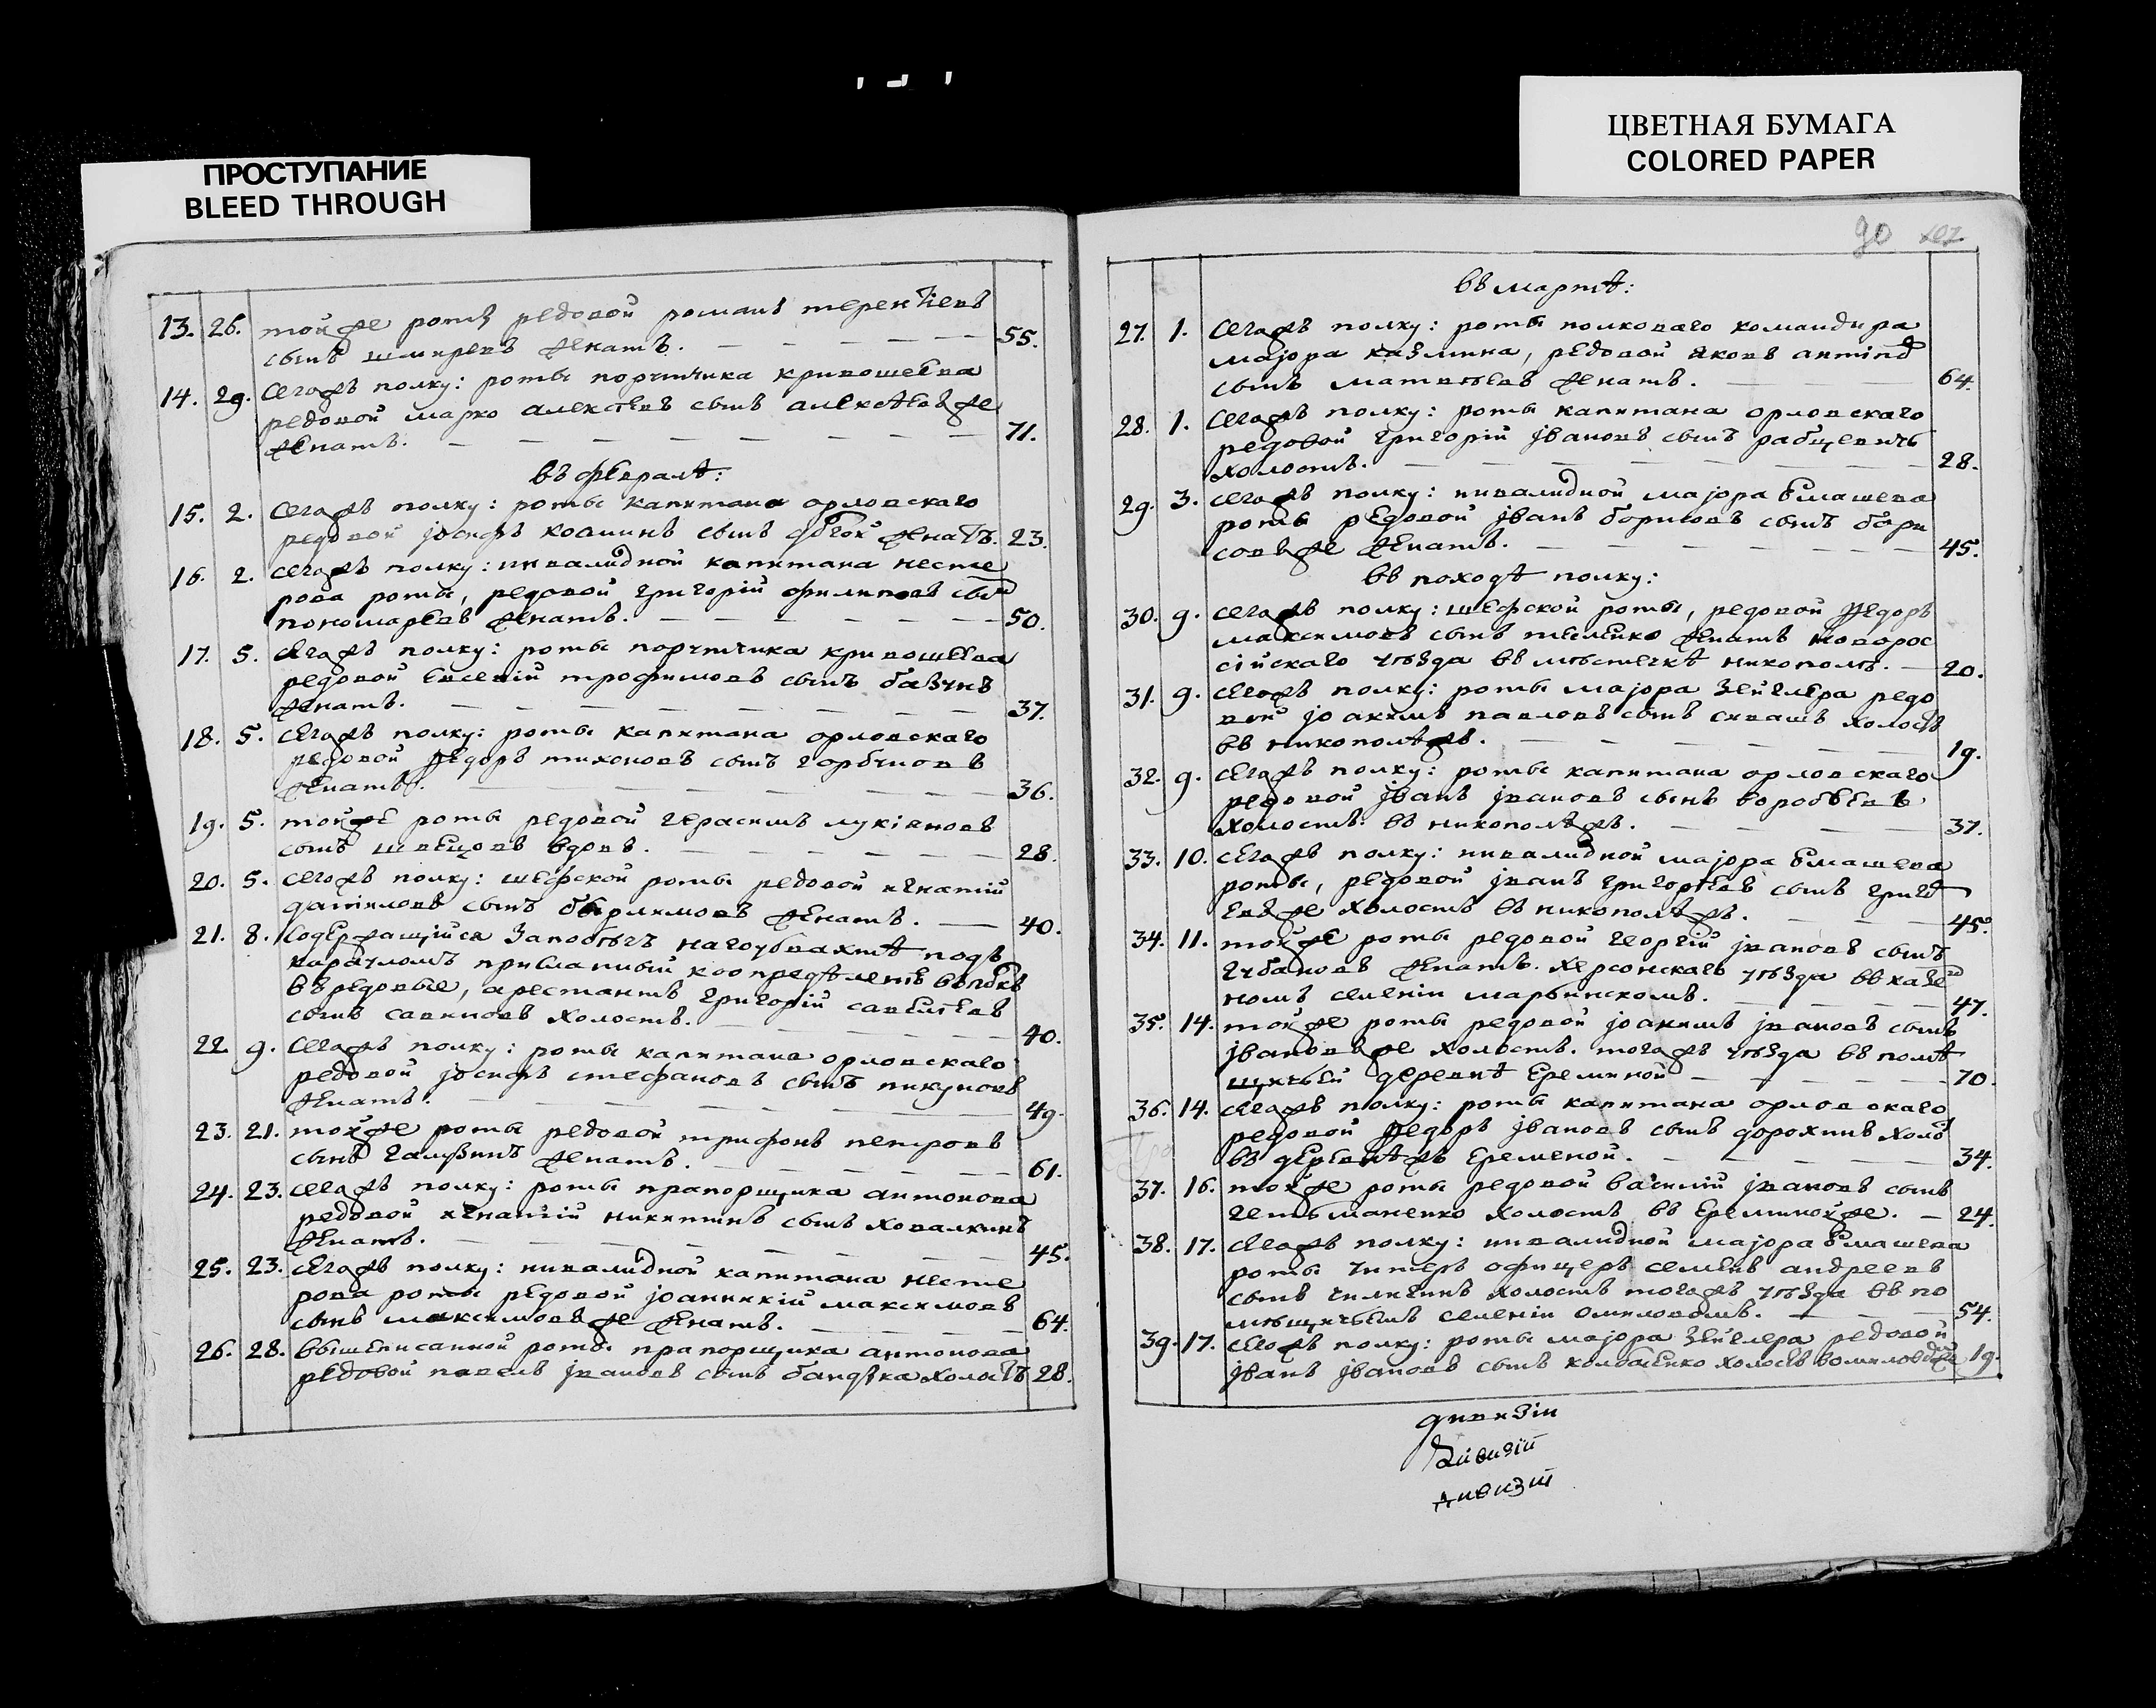 ПРОСТУПАНИЕ
BLEED THROUGH
ЦВЕТНАЯ БУМАГА
COLORED PAPER
13. 26. тойже роты редовой романъ терентiевъ
сынъ шмиревъ женатъ. 55.
14. 29. Сегожъ полку: роты порутчика кривошеева
редовой марко алексеевъ сынъ алексѣевже
женатъ. 71.
въ февралѣ:
15. 2. Сегожъ полку: роты капитана орловскаго
редовой јосифъ козминъ сынъ женатъ. 23.
16. 2. сегожъ полку: инвалидной капитана несте
рова роты, редовой григорiй филиповъ сынъ
пономаревъ женатъ. 50.
17. 5. Сегожъ полку: роты порутчика кривошеева
редовой евсевiй трофимовъ сынъ
женатъ. 37.
18. 5. Сегожъ полку: роты капитана орловскаго
редовой федоръ тихоновъ сынъ горбуновъ
женатъ. 36.
19. 5. тойже роты редовой герасимъ лукiяновъ
сынъ швецовъ вдовъ. 28.
20. 5. сегожъ полку: шефской роты редовой игнатiй
данiиловъ сынъ женатъ. 40.
21. 8. Содержащiйся запобѣгъ нагоубвахтѣ подъ
карауломъ присланный копредѣленѣ вполкъ
въ редовые, арестантъ григорiй савельевъ
сынъ савиновъ холостъ. 40.
22 9. Сегожъ полку: роты капитана орловскаго
редовой јосифъ стефановъ сынъ пикуновъ
женатъ. 49.
23. 21. тойже роты редовой трифонъ петровъ
сынъ галузинъ женатъ. 61.
24. 23. сегожъ полку: роты прапорщика антонова
редовой игнатiй никитинъ сынъ ховалкинъ
женатъ. 45.
25. 23. Сегожъ полку: инвалидной капитана несте
рова роты редовой јоанникiй максимовъ
сынъ максимовже женатъ. 64.
26. 28. вышеписанной роты прапорщика антонова
редовой павелъ јвановъ сынъ бандѣка холостъ 28.
90
въ мартѣ:
27. 1. Сегожъ полку: роты полковаго командира
мајора казмина, редовой яковъ антипо
сынъ матвѣевъ женатъ. 64.
28. 1. Сегожъ полку: роты капитана орловскаго
редовой григорiй јвановъ сынъ рабцевичъ
холостъ. 28.
29. 3. сегожъ полку: инвалидной мајора елашева
роты редовой јванъ борисовъ сынъ бори
совъже женатъ. 45.
въ походѣ полку:
30. 9. сегожъ полку: шефской роты, редовой федоръ
максимовъ сынъ женатъ новорос
сiйскаго уѣзда въ мѣстечкѣ никополѣ. 20.
31. 9. сегожъ полку: роты мајора зейглера редо
вой јоакимъ павловъ сынъ сквашъ холостъ
въ никополѣжъ. 19.
32. 9. сегожъ полку: роты капитана орловскаго
редовой јванъ јвановъ сынъ воробьевъ
холостъ. въ никополѣжъ. 37.
33. 10. сегожъ полку: инвалидной мајора елашева
роты, редовой јванъ григорьевъ сынъ григо
евъже холостъ въ никополѣжъ. 45.
34. 11. тойже роты редовой георгiй јвановъ сынъ
губановъ женатъ. херсонскаго уѣзда въ казе
номъ селенiи марьинскомъ. 47.
35. 14. тойже роты редовой јоакимъ јвановъ сынъ
јвановъже холостъ. тогожъ уѣзда въ помѣ
щичьей деревнѣ ереминой 70.
36. 14. сегожъ полку: роты капитана орловскаго
редовой федоръ јвановъ сынъ дорохинъ холо
въ деревнѣжъ еременой. 34.
37. 16. тойже роты редовой василiй јвановъ сынъ
гетьманенко холостъ въ ереминойже. 24.
38. 17. сегожъ полку: инвалидной мајора елашева
роты унтеръ офицеръ семенъ андреевъ
сынъ чиличинъ холостъ тогожъ уѣзда въ по
мѣщичьемъ селенiи омиловомъ. 54.
39. 17. сегожъ полку: роты мајора зейглера редовой
јванъ јвановъ сынъ колбасенко холостъ 19.
дивизiи
дивизiи
дивизiи